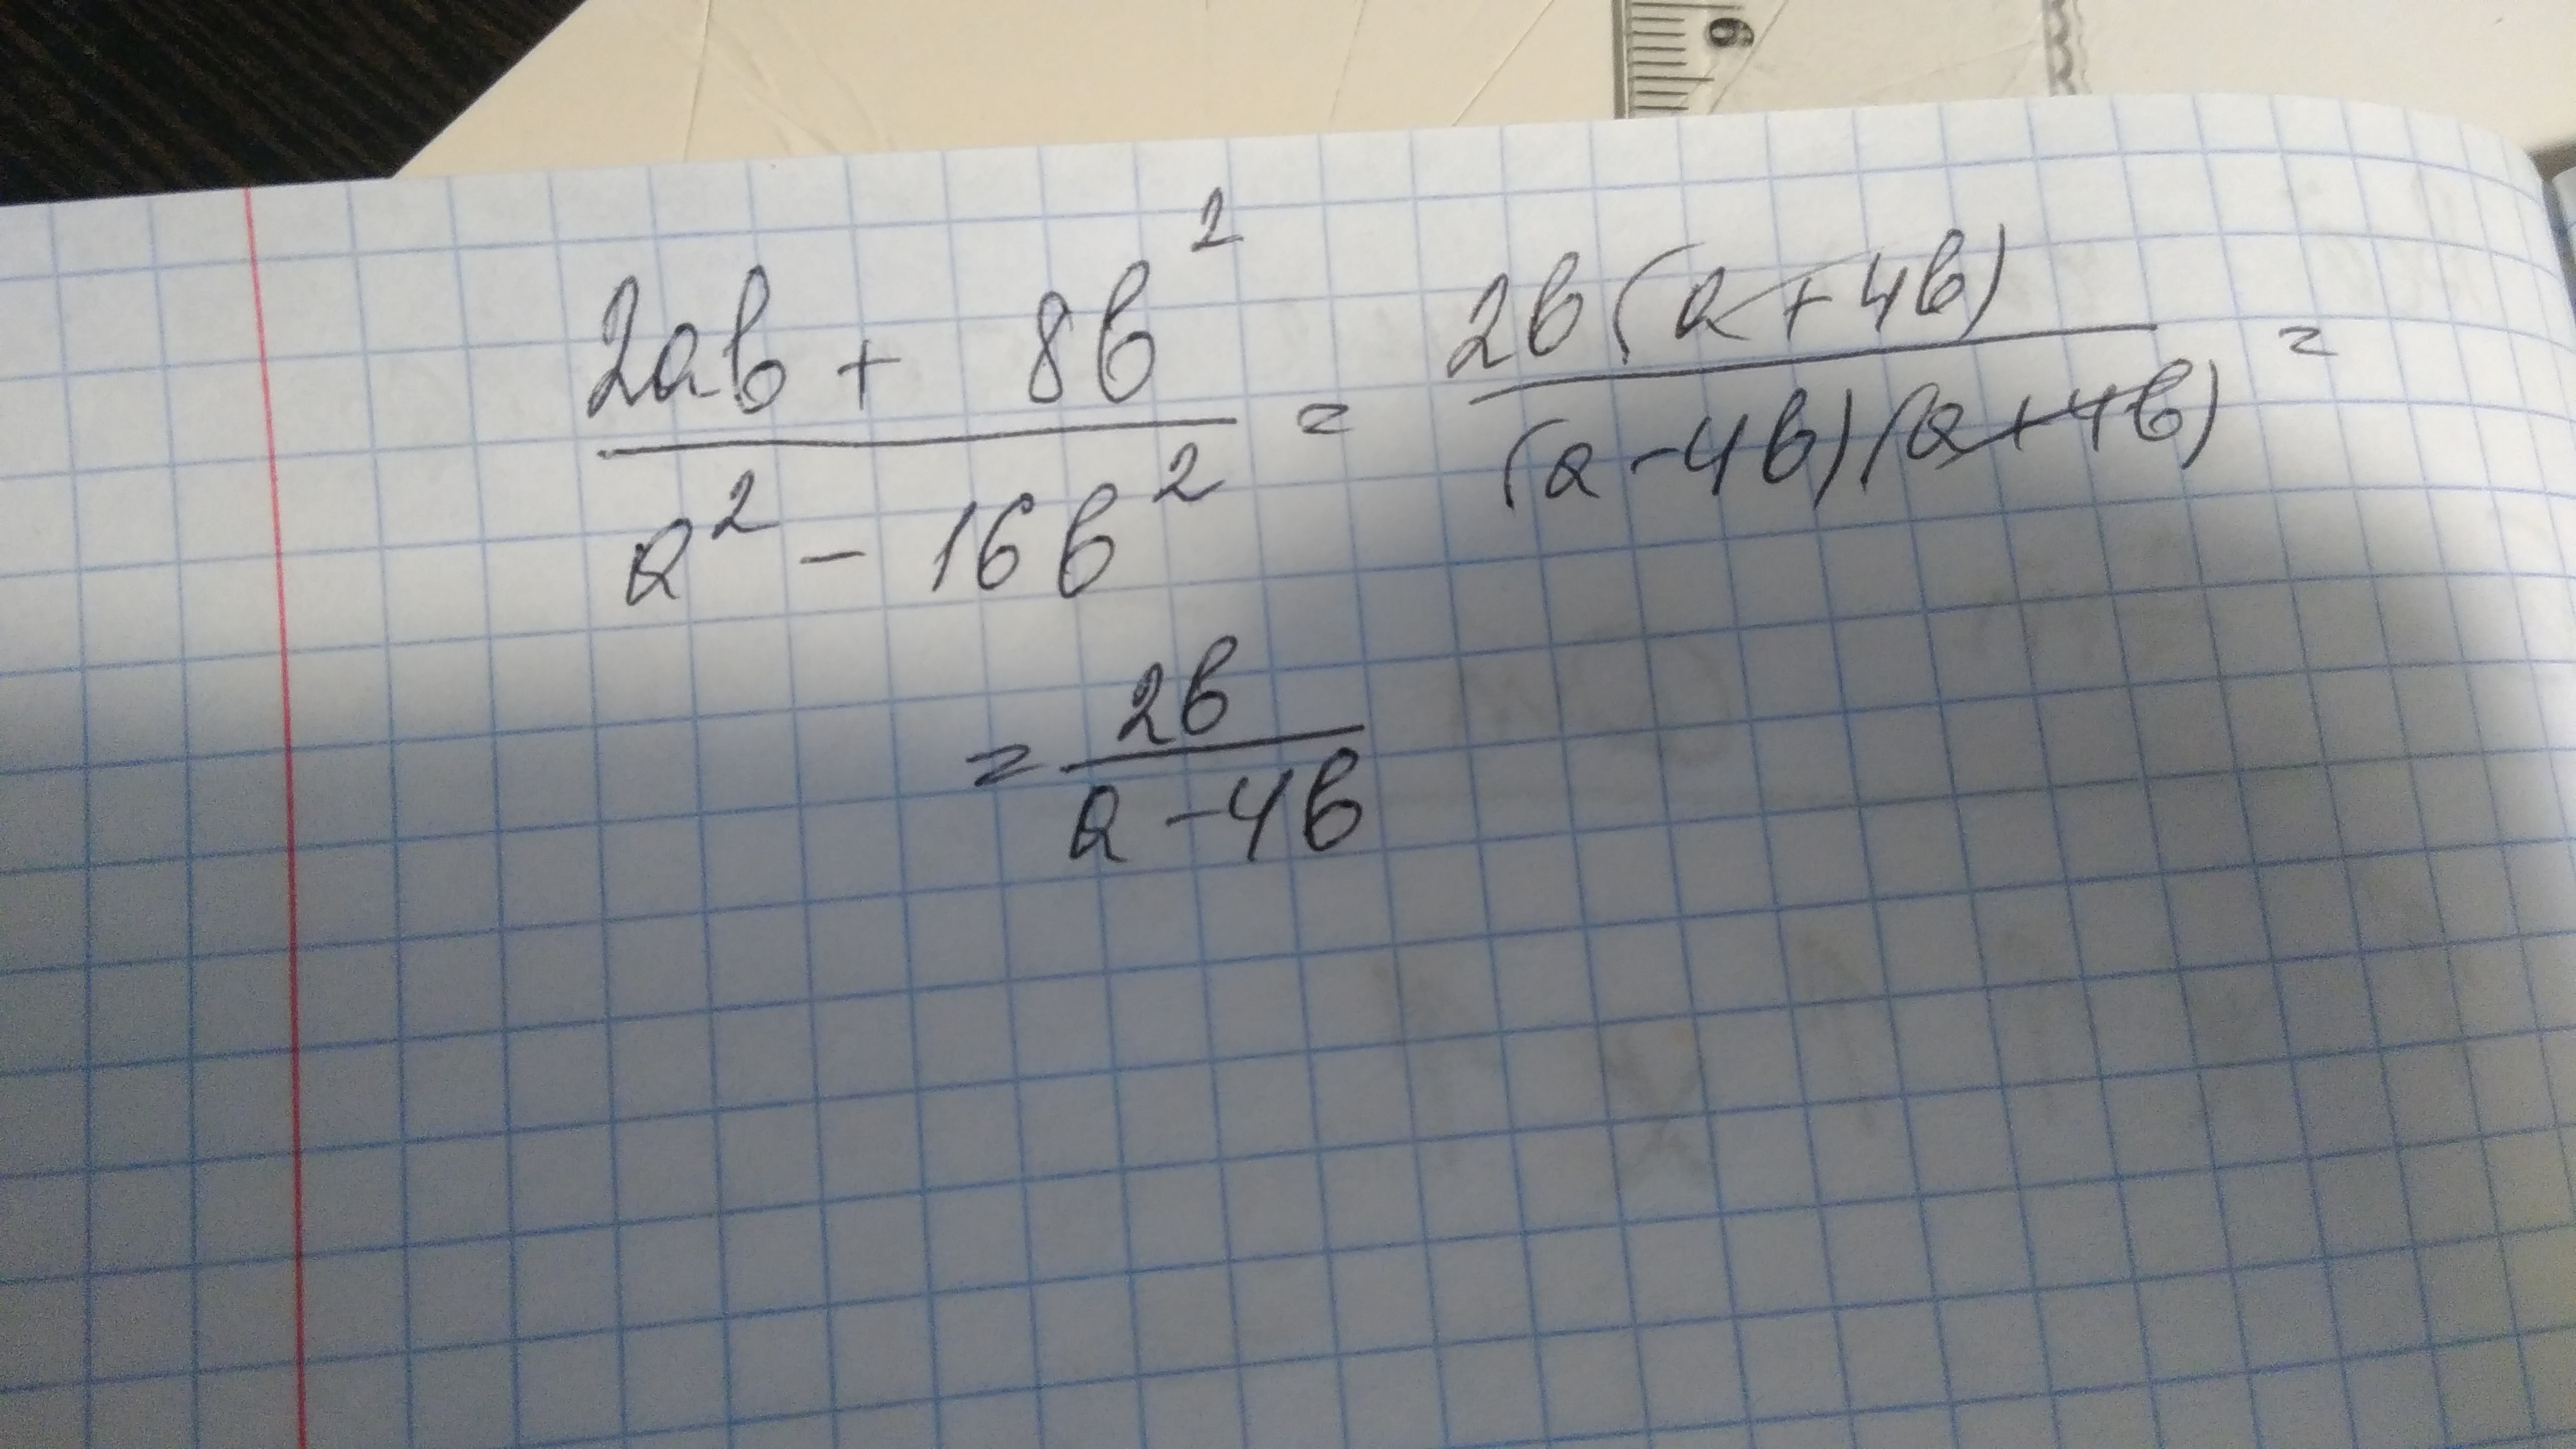 6
2ab + 8b² / a² - 16b² = 2b(a+4b) / (a-4b)(a+4b) =
= 2b / a-4b